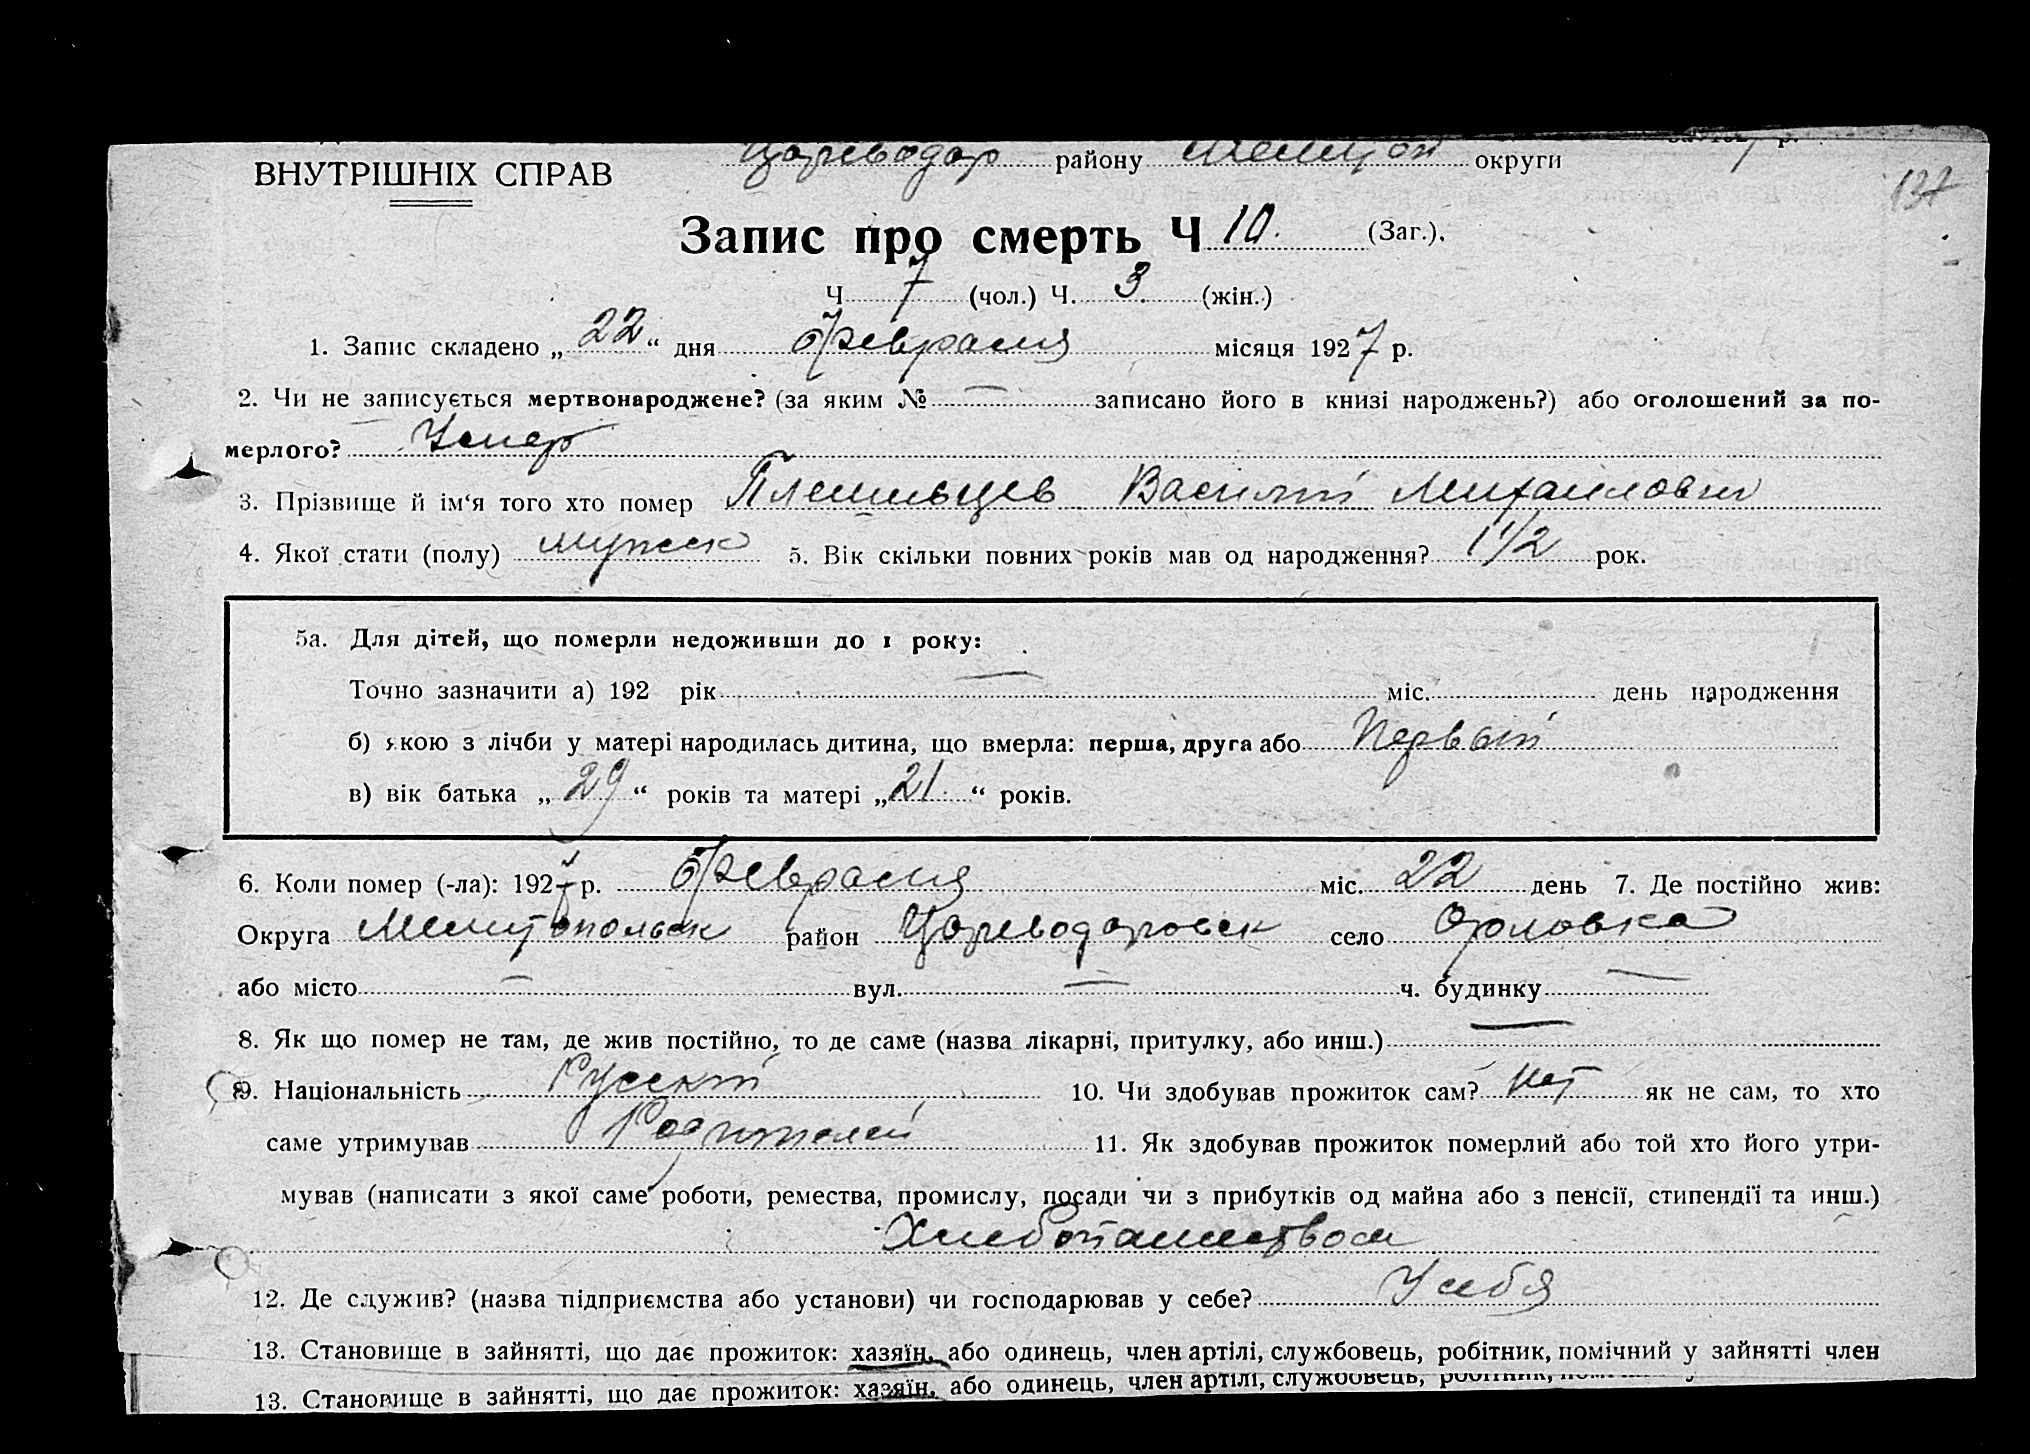 ВНУТРІШНІХ СПРАВ Цареводар району Мелитоп округи
137
Запис про смерть Ч 10. (Заг.).
Ч 7 (чол.) Ч. 3 (жін.)
1. Запис складено „ 22 “ дня Февраля місяця 1927 р.
2. Чи не записується мертвонароджене? (за яким № — записано його в книзі народжень?) або оголошений за по-
мерлого? Умер
3. Прізвище й ім‘я того хто помер Василий Михайлович
4. Якої стати (полу) мужск 5. Вік скільки повних років мав од народження? 1 1/2 рок.
5а. Для дітей, що померли недоживши до 1 року:
Точно зазначити а) 192 рік — міс. день народження
б) якою з лічби у матері народилась дитина, що вмерла: перша, друга або Первый
в) вік батька „ 29 “ років та матері „ 21 “ років.
6. Коли помер (-ла): 1927 р. Февраля міс. 22 день 7. Де постійно жив:
Округа Мелитопольск район Цареводаровск село Орловка
або місто — вул. — ч. будинку —
8. Як що помер не там, де жив постійно, то де саме (назва лікарні, притулку, або инш.) —
9. Національність Русский 10. Чи здобував прожиток сам? Нет як не сам, то хто
саме утримував Родители 11. Як здобував прожиток померлий або той хто його утри-
мував (написати з якої саме роботи, ремества, промислу, посади чи з прибутків од майна або з пенсії, стипендії та инш.)
Хлебопашеством
12. Де служив? (назва підприємства або установи) чи господарював у себе? У себя
13. Становище в зайнятті, що дає прожиток: хазяїн, або одинець, член артілі, службовець, робітник, помічний у зайнятті член
13. Становище в зайнятті, що дає прожиток: хазяїн, або одинець, член артілі, службовець,